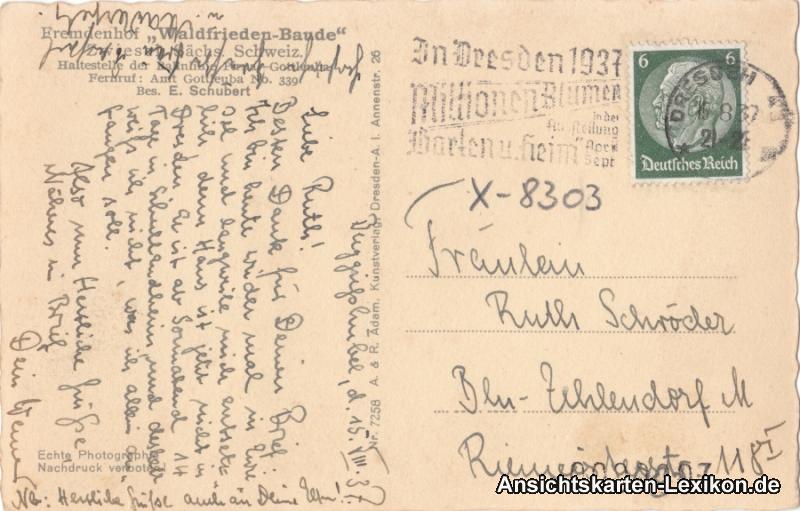 Fremdenhof „Waldfrieden-Baude"
Sächs. Schweiz.
Haltestelle der
Fernruf: Amt Gottleuba No. 339
Bes. E. Schubert
d. 15. VIII. 37
Liebe Ruth!
Besten Dank für Deinen Brief.
Ich bin heute wieder mal in
und langweile mich
denn Hans ist jetzt nicht in
Dresden. Er ist ab Sonnabend 14
Tage im Schullandheim, und deshalb
weiß ich nicht, was ich allein
fangen soll.
Also nun Herzliche Grüße
Näheres im Brief
Dein Werner
Nb: Herzliche Grüße auch an Deine Eltern!
Echte Photographie
Nachdruck verboten!
Nr. 7258 A. & R. Adam, Kunstverlag, Dresden-A. I, Annenstr. 26
In Dresden 1937
Millionen Blumen
in der
Ausstellung
Garten u. Heim
April
Sept
6 6
Deutsches Reich
DRESDEN
X-8303
Fräulein
Ruth Schröder
Bln-Zehlendorf M
118 I
Ansichtskarten-Lexikon.de